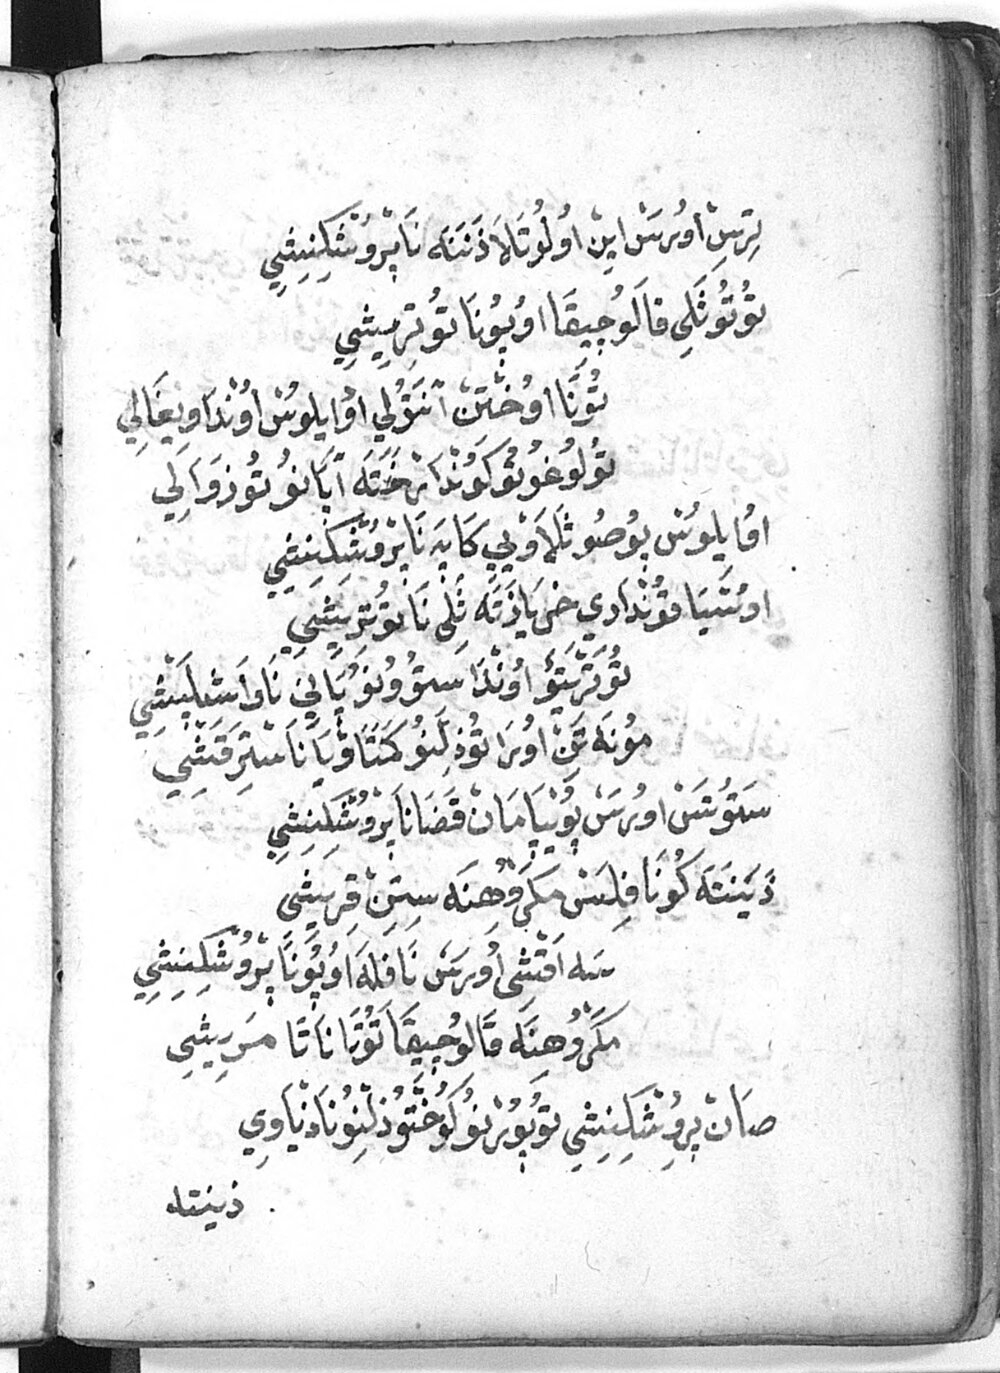 تِرِسْ اوُرَسْ اِينْ اوُلوُتَالَا ذَنَنَه نَاپْروُشْكِنِشِي
توُتوُثَلِي قالَوُجِيقَا اوُپوُنَا توُتِرِيشِي
توُنَّا اوُخْتَنْ آنَتوُلِي اوُايلوُسْ اوُنْدَا وِيغَالِي
توُلوُغوُتوُ كوُنْدَارْخَتَه آپَانوُ توُذوَالِي
اوُايلوُسْ پوُصوُ ثَلَا وْپِي كَايَه نَاپْروُشْكِنِشِي
اوُسْتِيَا قوُنْدَادِي خَرْيَاذَتَه ثَلِي نَاتوُتِرِيشِي
توُقَرْتِيوُ اوُنْدَا سَتوُوُنوُ پَالِي نَاوَاسْيلَپْشِي
موُنَه تَنْ اوُرَا توُذِلِّنوُ كَمَتَا وْيَانَاسْتِرَقَپْشِي
سَتوُتَسْ اوُرَسْ پوُنْيِپَامَانْ قَضَا نَاپْروُشْكِنِشِي
ذَيَنَتَه كوُنَا فِلَسْ مَكْروُهِنَه سِتِنْ قِرِيشِي
سَه اَقْشِي اوُرَسْ نَافِلَه اوُپوُنَا پْروُشْكِنِشِي
مَكْروُهِنَه قَالوُجِيقَا توُتَا نَاتَا مَرِيشِي
صَانْ پِروُشْكِنِشِي توُپوُرْنوُ كوُخْتوُذِلِنوُنَا ذِنْيَاوِي
ذينتاه